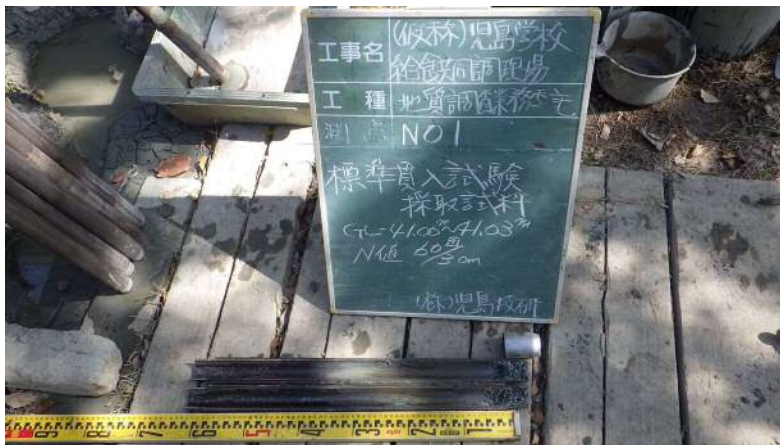 工事名 (仮称)児島学校
給食共同調理場
工種 地質調査業務委託
測点 NO1
標準貫入試験
採取試料
GL-41.00m~41.03m
N値 60回/3cm
(株)児島技研
9 8 7 6 5 4 3 2 1